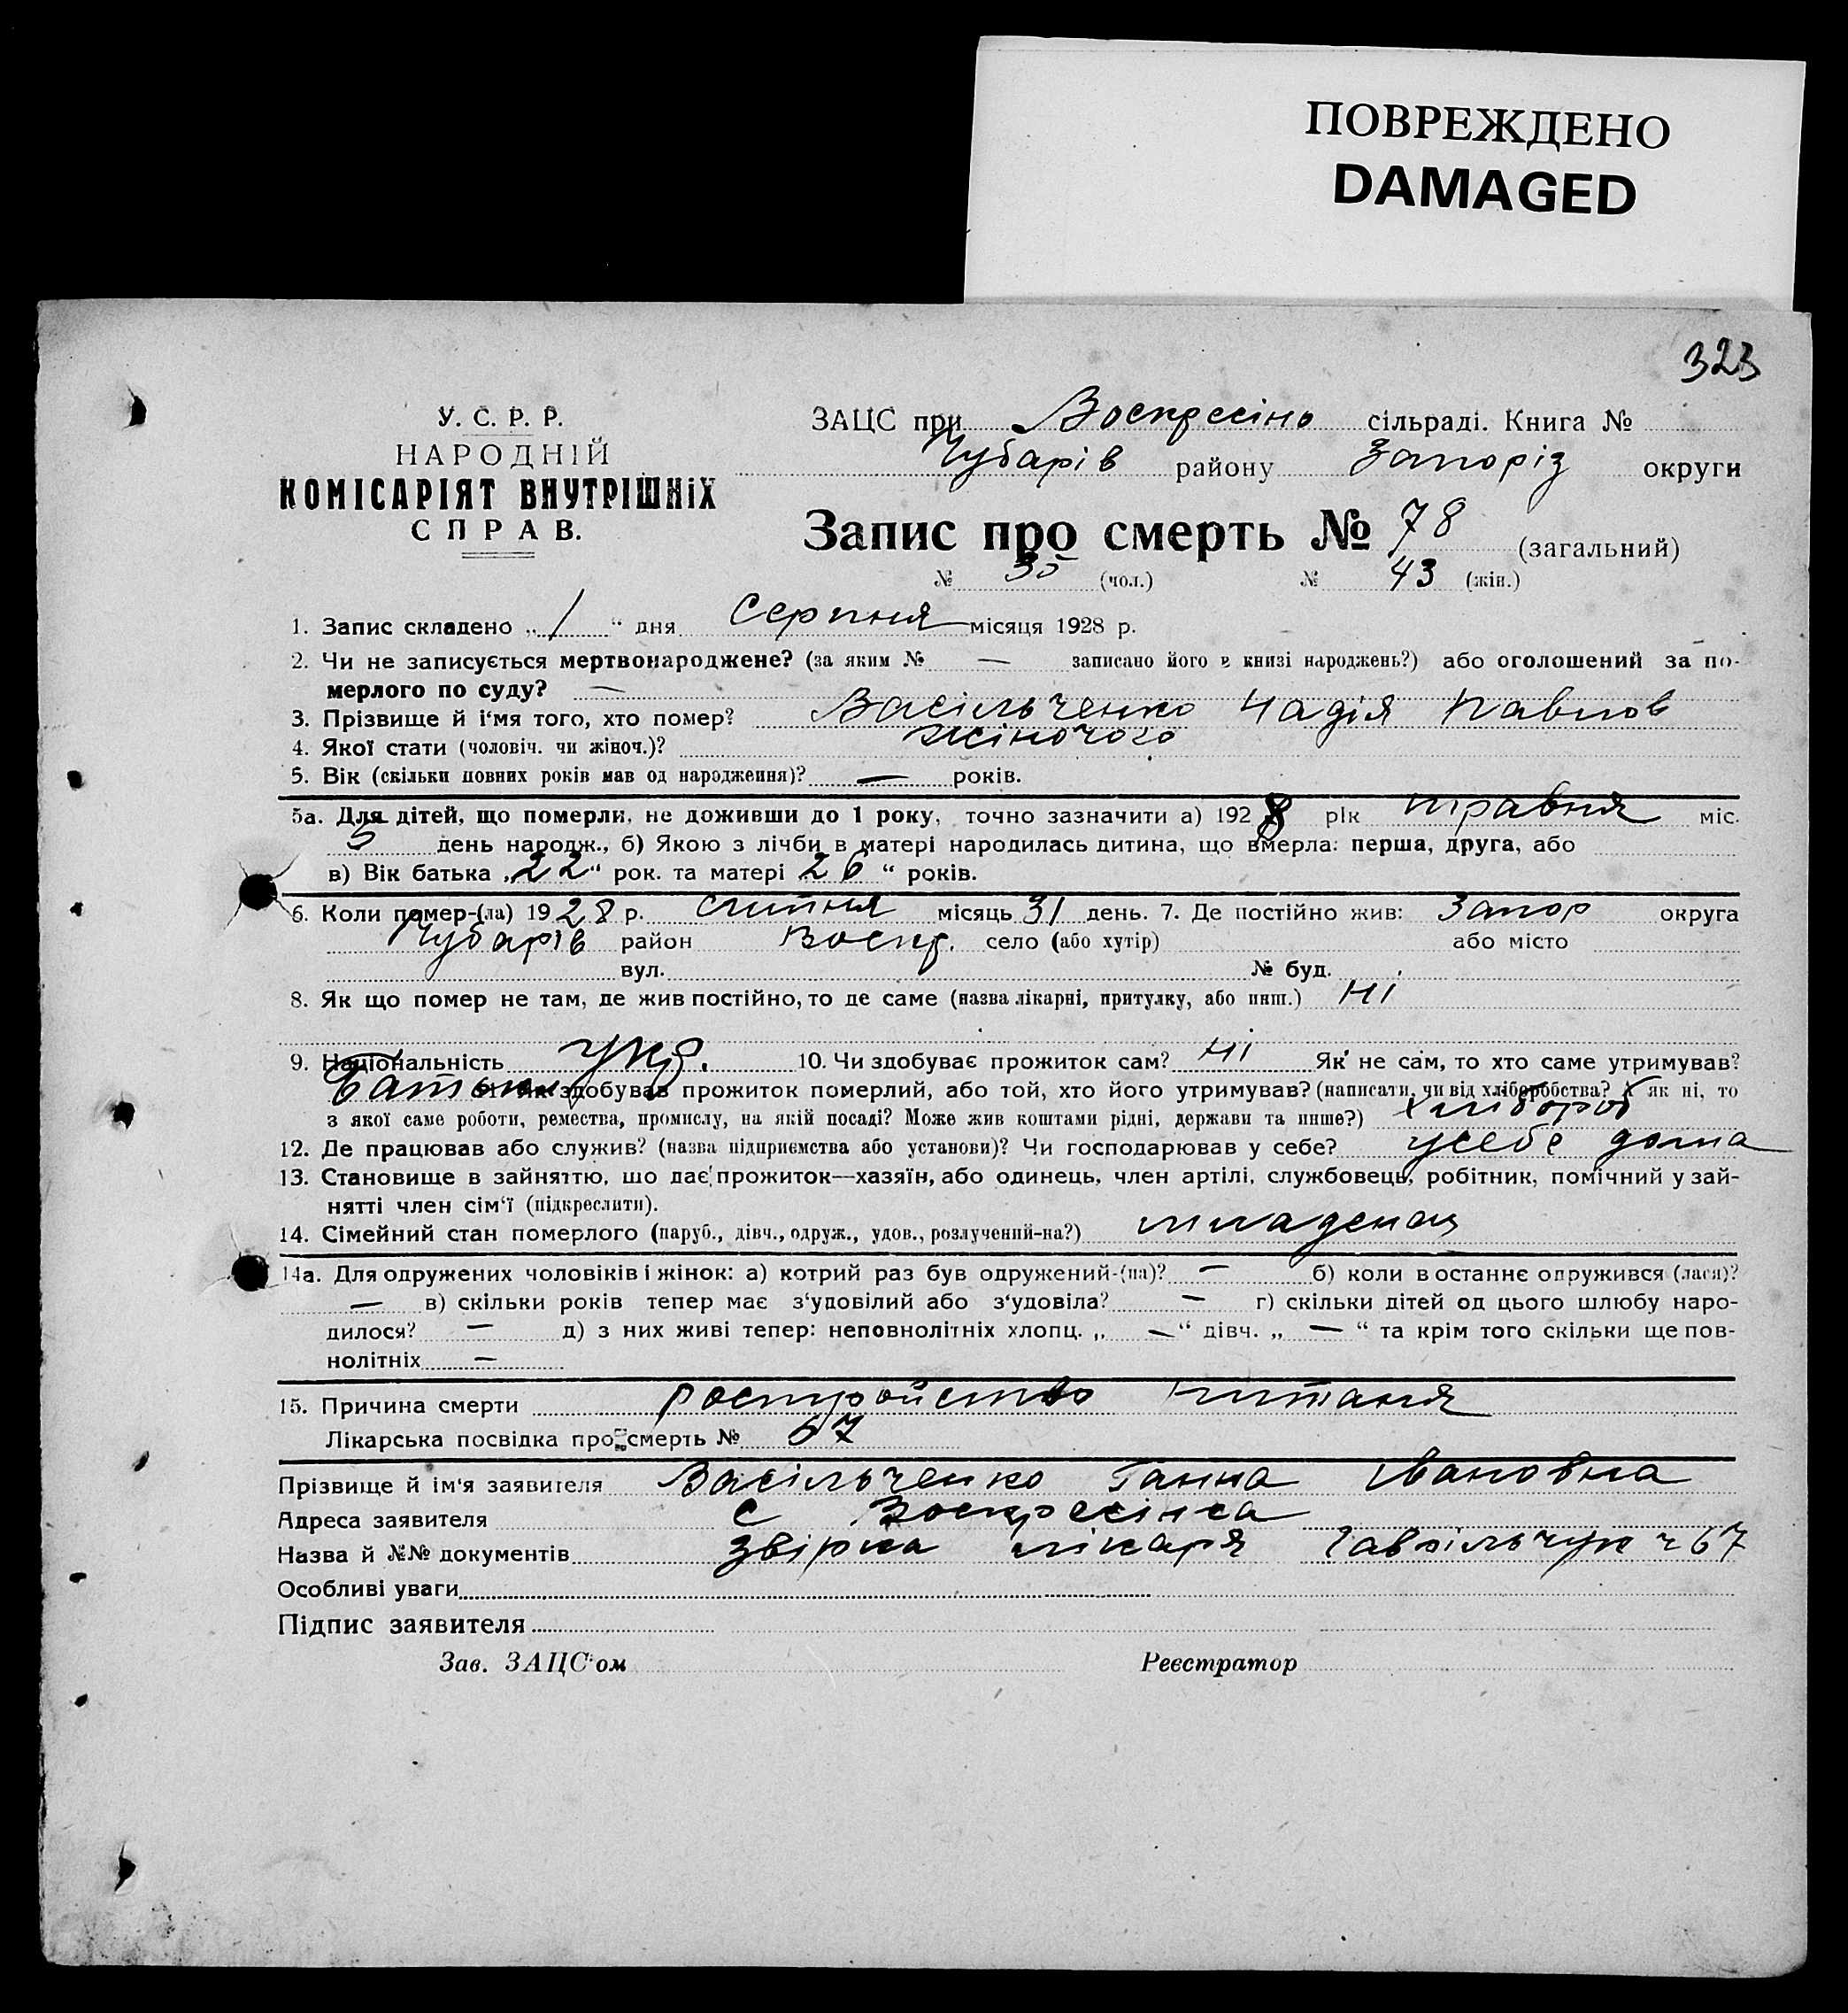 ПОВРЕЖДЕНО
DAMAGED
323
У. С. Р. Р.
НАРОДНІЙ
КОМІСАРІЯТ ВНУТРІШНіХ
СПРАВ.
ЗАЦС при Воскресіно сільраді. Книга №
Чубарів району Запоріз округи
Запис про смерть № 78 (загальний)
№ 35 (чол.) № 43 (жін.)
1. Запис складено „ 1 “ дня Серпня місяця 1928 р.
2. Чи не записується мертвонароджене? (за яким № — записано його в книзі народжень?) або оголошений за по-
мерлого по суду? —
3. Прізвище й і‘мя того, хто помер? Васільченко Надія Павлов
4. Якої стати (чоловіч. чи жіноч.)? жіночого
5. Вік (скільки повних років мав од народження)? — років.
5а. Для дітей, що померли, не доживши до 1 року, точно зазначити а) 1928 рік травня міс.
5 день народж., б) Якою з лічби в матері народилась дитина, що вмерла: перша, друга, або
в) Вік батька „22“ рок. та матері 26 “ років.
6. Коли помер-(ла) 1928 р. липня місяць 31 день. 7. Де постійно жив: Запор округа
Чубарів район Воскр. село (або хутір) або місто
вул. № буд.
8. Як що помер не там, де жив постійно, то де саме (назва лікарні, притулку, або инш.) Ні
9. Національність укр. 10. Чи здобуває прожиток сам? Ні Як не сам, то хто саме утримував?
Батьки Як здобував прожиток померлий, або той, хто його утримував? (написати, чи від хліборобства? А як ні, то
з якої саме роботи, ремества, промислу, на якій посаді? Може жив коштами рідні, держави та инше?) хлібороб
12. Де працював або служив? (назва підприємства або установи)? Чи господарював у себе? усебе дома
13. Становище в зайняттю, що дає прожиток—хазяїн, або одинець, член артілі, службовець, робітник, помічний у зай-
нятті член сім‘ї (підкреслити).
14. Сімейний стан померлого (паруб., дівч., одруж., удов., розлучений-на?)
14а. Для одружених чоловіків і жінок: а) котрий раз був одружений-(на)? — б) коли в останнє одружився (лася)?
— в) скільки років тепер має з‘удовілий або з‘удовіла? — г) скільки дітей од цього шлюбу наро-
дилося? — д) з них живі тепер: неповнолітніх хлопц. „ — “ дівч. „ — “ та крім того скільки ще пов-
нолітніх —
15. Причина смерти ростройство питаня
Лікарська посвідка про смерть № 67
Прізвище й ім‘я заявителя Васільченко Ганна Івановна
Адреса заявителя С Воскресінка
Назва й №№ документів лікаря ч 67
Особливі уваги
Підпис заявителя
Зав. ЗАЦС‘ом Реєстратор